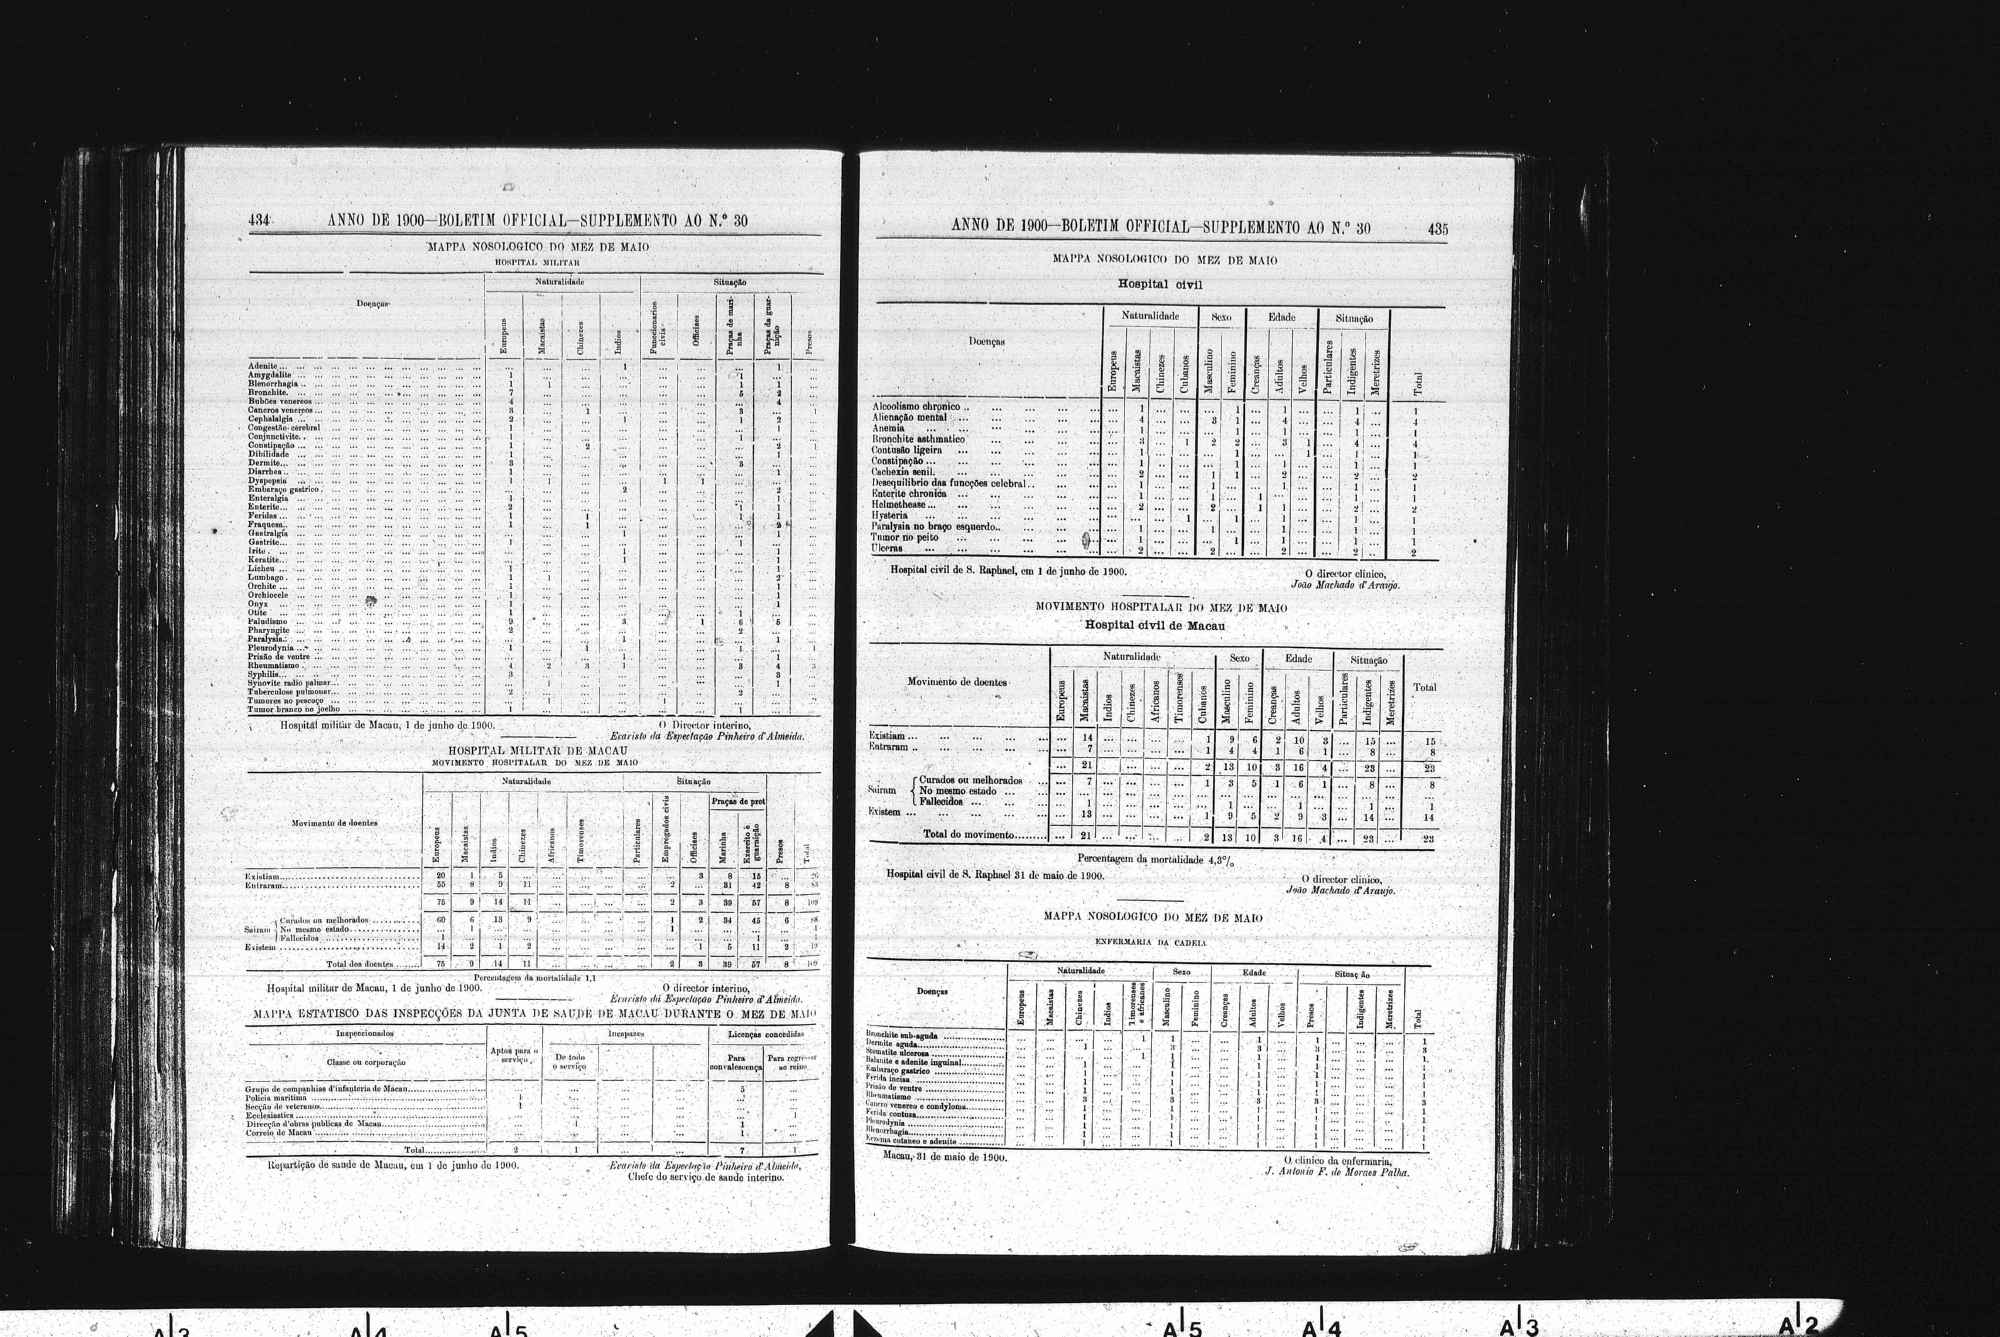 434 ANNO DE 1900—BOLETIM OFFICIAL—SUPPLEMENTO AO N.º 30
MAPPA NOSOLOGICO DO MEZ DE MAIO
HOSPITAL MILITAR
Doenças
Naturalidade
Situação
Europeus
Macaistas
Chinezes
Indios
Funccionarios civis
Officiaes
Praças de marinha
Praças da guarnição
Presos
Adenite ... 1 ... 1
Amygdalite ... 1 ... 1
Blenorrhagia ... 1 1 ... 1 1
Bronchite ... 7 ... 5 2
Bubões venereos ... 4 ... 4
Cancros venereos ... 3 ... 1 ... 3 ... 1
Cephalalgia ... 2 ... 1 ... 1 2
Congestão cerebral ... 1 ... 1
Conjunctivite ... 1 ... 1
Constipação ... 1 ... 2 ... 2 1
Dibilidade ... 1 ... 1
Dermite ... 3 ... 3
Diarrhea ... 1 ... 1
Dyspepsia ... 1 1 ... 1 1
Embaraço gastrico ... 2 ... 2
Enteralgia ... 1 ... 1
Enterite ... 2 ... 1 1
Feridas ... 1 ... 1 ... 1 1
Fraquesa ... 1 ... 1 ... 2
Gastralgia ... 1 ... 1
Gastrite ... 1 ... 1
Irite ... 1 ... 1
Keratite ... 1 ... 1
Licheu ... 1 ... 1
Lumbago ... 1 1 ... 2
Orchite ... 1 ... 1
Orchiocele ... 1 ... 1
Onyx ... 1 ... 1
Otite ... 1 ... 1
Paludismo ... 9 ... 3 ... 1 6 5
Pharyngite ... 2 ... 2
Paralysia ... 1 ... 1
Pleurodynia ... 1 ... 1 ... 1 ... 1
Prisão de ventre ... 1 ... 1
Rheumatismo ... 4 2 3 1 ... 3 4 3
Syphilis ... 3 ... 3
Synovite radio palmar ... 1 ... 1
Tuberculose pulmonar ... 2 ... 2
Tumores no pescoço ... 1 ... 1
Tumor branco no joelho ... 1 ... 1
Hospital militar de Macau, 1 de junho de 1900.
O Director interino,
Evaristo da Espectação Pinheiro d'Almeida.
HOSPITAL MILITAR DE MACAU
MOVIMENTO HOSPITALAR DO MEZ DE MAIO
Movimento de doentes
Naturalidade
Situação
Praças de pret
Europeus
Macaistas
Indios
Chinezes
Africanos
Timorenses
Particulares
Empregados civis
Officiaes
Marinha
Exercito e guarnição
Presos
Total
Existiam ... 20 1 5 ... 3 8 15 ... 26
Entraram ... 55 8 9 11 ... 2 ... 31 42 8 83
75 9 14 11 ... 2 3 39 57 8 109
Sairam
Curados ou melhorados ... 60 6 13 9 ... 1 2 34 45 6 88
No mesmo estado ... 1 ... 1 ... 1
Fallecidos ... 1 ... 1 ... 1
Existem ... 14 2 1 2 ... 1 5 11 2 19
Total dos doentes ... 75 9 14 11 ... 2 3 39 57 8 109
Percentagem da mortalidade 1,1
Hospital militar de Macau, 1 de junho de 1900.
O director interino,
Evaristo da Espectação Pinheiro d'Almeida.
MAPPA ESTATISCO DAS INSPECÇÕES DA JUNTA DE SAUDE DE MACAU DURANTE O MEZ DE MAIO
Inspeccionados
Classe ou corporação
Aptos para o serviço
Incapazes
De todo o serviço
Licenças concedidas
Para convalescença
Para regressar ao reino
Grupo de companhias d'infanteria de Macau ... 5
Policia maritima ... 1
Secção de veteranos ... 1
Ecclesiastica ... 1
Direcção d'obras publicas de Macau ... 1 ... 1
Correio de Macau ... 1
Total ... 2 1 ... 7 1
Repartição de saude de Macau, em 1 de junho de 1900.
Evaristo da Espectação Pinheiro d'Almeida,
Chefe do serviço de saude interino.
ANNO DE 1900—BOLETIM OFFICIAL—SUPPLEMENTO AO N.º 30 435
MAPPA NOSOLOGICO DO MEZ DE MAIO
Hospital civil
Doenças
Naturalidade
Sexo
Edade
Situação
Europeus
Macaistas
Chinezes
Cubanos
Masculino
Feminino
Creanças
Adultos
Velhos
Particulares
Indigentes
Meretrizes
Total
Alcoolismo chronico ... 1 ... 1 ... 1 ... 1 ... 1
Alienação mental ... 4 ... 3 1 ... 4 ... 4 ... 4
Anemia ... 1 ... 1 ... 1 ... 1 ... 1
Bronchite asthmatico ... 3 ... 1 2 2 ... 3 1 ... 4 ... 4
Contusão ligeira ... 1 ... 1 ... 1 ... 1 ... 1
Constipação ... 1 ... 1 ... 1 ... 1 ... 1
Cachexia senil ... 2 ... 1 1 ... 2 ... 2 ... 2
Desequilibrio das funcções celebral ... 1 ... 1 ... 1 ... 1 ... 1
Enterite chronica ... 1 ... 1 ... 1 ... 1 ... 1
Helmethease ... 2 ... 2 ... 1 1 ... 2 ... 2
Hysteria ... 1 ... 1 ... 1 ... 1 ... 1
Paralysia no braço esquerdo ... 1 ... 1 ... 1 ... 1 ... 1
Tumor no peito ... 1 ... 1 ... 1 ... 1 ... 1
Ulceras ... 2 ... 2 ... 2 ... 2 ... 2
Hospital civil de S. Raphael, em 1 de junho de 1900.
O director clinico,
João Machado d'Araujo.
MOVIMENTO HOSPITALAR DO MEZ DE MAIO
Hospital civil de Macau
Movimento de doentes
Naturalidade
Sexo
Edade
Situação
Total
Europeus
Macaistas
Indios
Chinezes
Africanos
Timorenses
Cubanos
Masculino
Feminino
Creanças
Adultos
Velhos
Particulares
Indigentes
Meretrizes
Existiam ... 14 ... 1 9 6 2 10 3 ... 15 ... 15
Entraram ... 7 ... 1 4 4 1 6 1 ... 8 ... 8
... 21 ... 2 13 10 3 16 4 ... 23 ... 23
Sairam
Curados ou melhorados ... 7 ... 1 3 5 1 6 1 ... 8 ... 8
No mesmo estado ...
Fallecidos ... 1 ... 1 ... 1 ... 1 ... 1
Existem ... 13 ... 1 9 5 2 9 3 ... 14 ... 14
Total do movimento ... 21 ... 2 13 10 3 16 4 ... 23 ... 23
Percentagem da mortalidade 4,3%
Hospital civil de S. Raphael 31 de maio de 1900.
O director clinico,
João Machado d'Araujo.
MAPPA NOSOLOGICO DO MEZ DE MAIO
ENFERMARIA DA CADEIA
Doenças
Naturalidade
Sexo
Edade
Situaç ão
Europeus
Macaistas
Chinezes
Indios
Timorenses e africanos
Masculino
Feminino
Creanças
Adultos
Velhos
Presos
Indigentes
Meretrizes
Total
Bronchite sub-aguda ... 1 1 ... 1 ... 1 ... 1
Dermite aguda ... 3 ... 3 ... 3 ... 3
Stomatite ulcerosa ... 1 1 ... 1 ... 1 ... 1
Balanite e adenite inguinal ... 1 ... 1 ... 1 ... 1 ... 1
Embaraço gastrico ... 1 ... 1 ... 1 ... 1 ... 1
Ferida incisa ... 1 ... 1 ... 1 ... 1 ... 1
Prisão de ventre ... 1 ... 1 ... 1 ... 1 ... 1
Rheumatismo ... 3 ... 3 ... 3 ... 3 ... 3
Cancro venereo e condyloma ... 1 ... 1 ... 1 ... 1 ... 1
Ferida contusa ... 1 ... 1 ... 1 ... 1 ... 1
Pleurodynia ... 1 ... 1 ... 1 ... 1 ... 1
Blenorrhagia ... 1 ... 1 ... 1 ... 1 ... 1
Eczema cutaneo e adenite ... 1 ... 1 ... 1 ... 1 ... 1
Macau, 31 de maio de 1900.
O clinico da enfermaria,
J. Antonio F. de Moraes Palha.
A 3 A 4 A 5 A 5 A 4 A 3 A 2